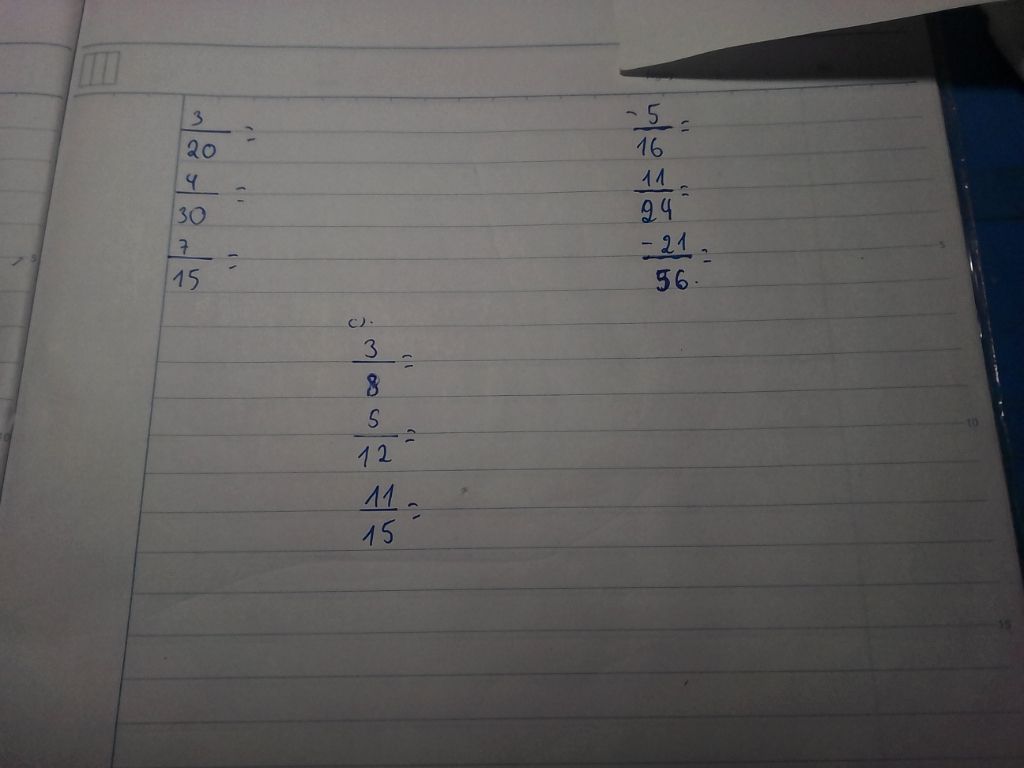 3/20 =
4/30 =
7/15 =
-5/16 =
11/24 =
-21/56 =
c).
3/8 =
5/12 =
11/15 =